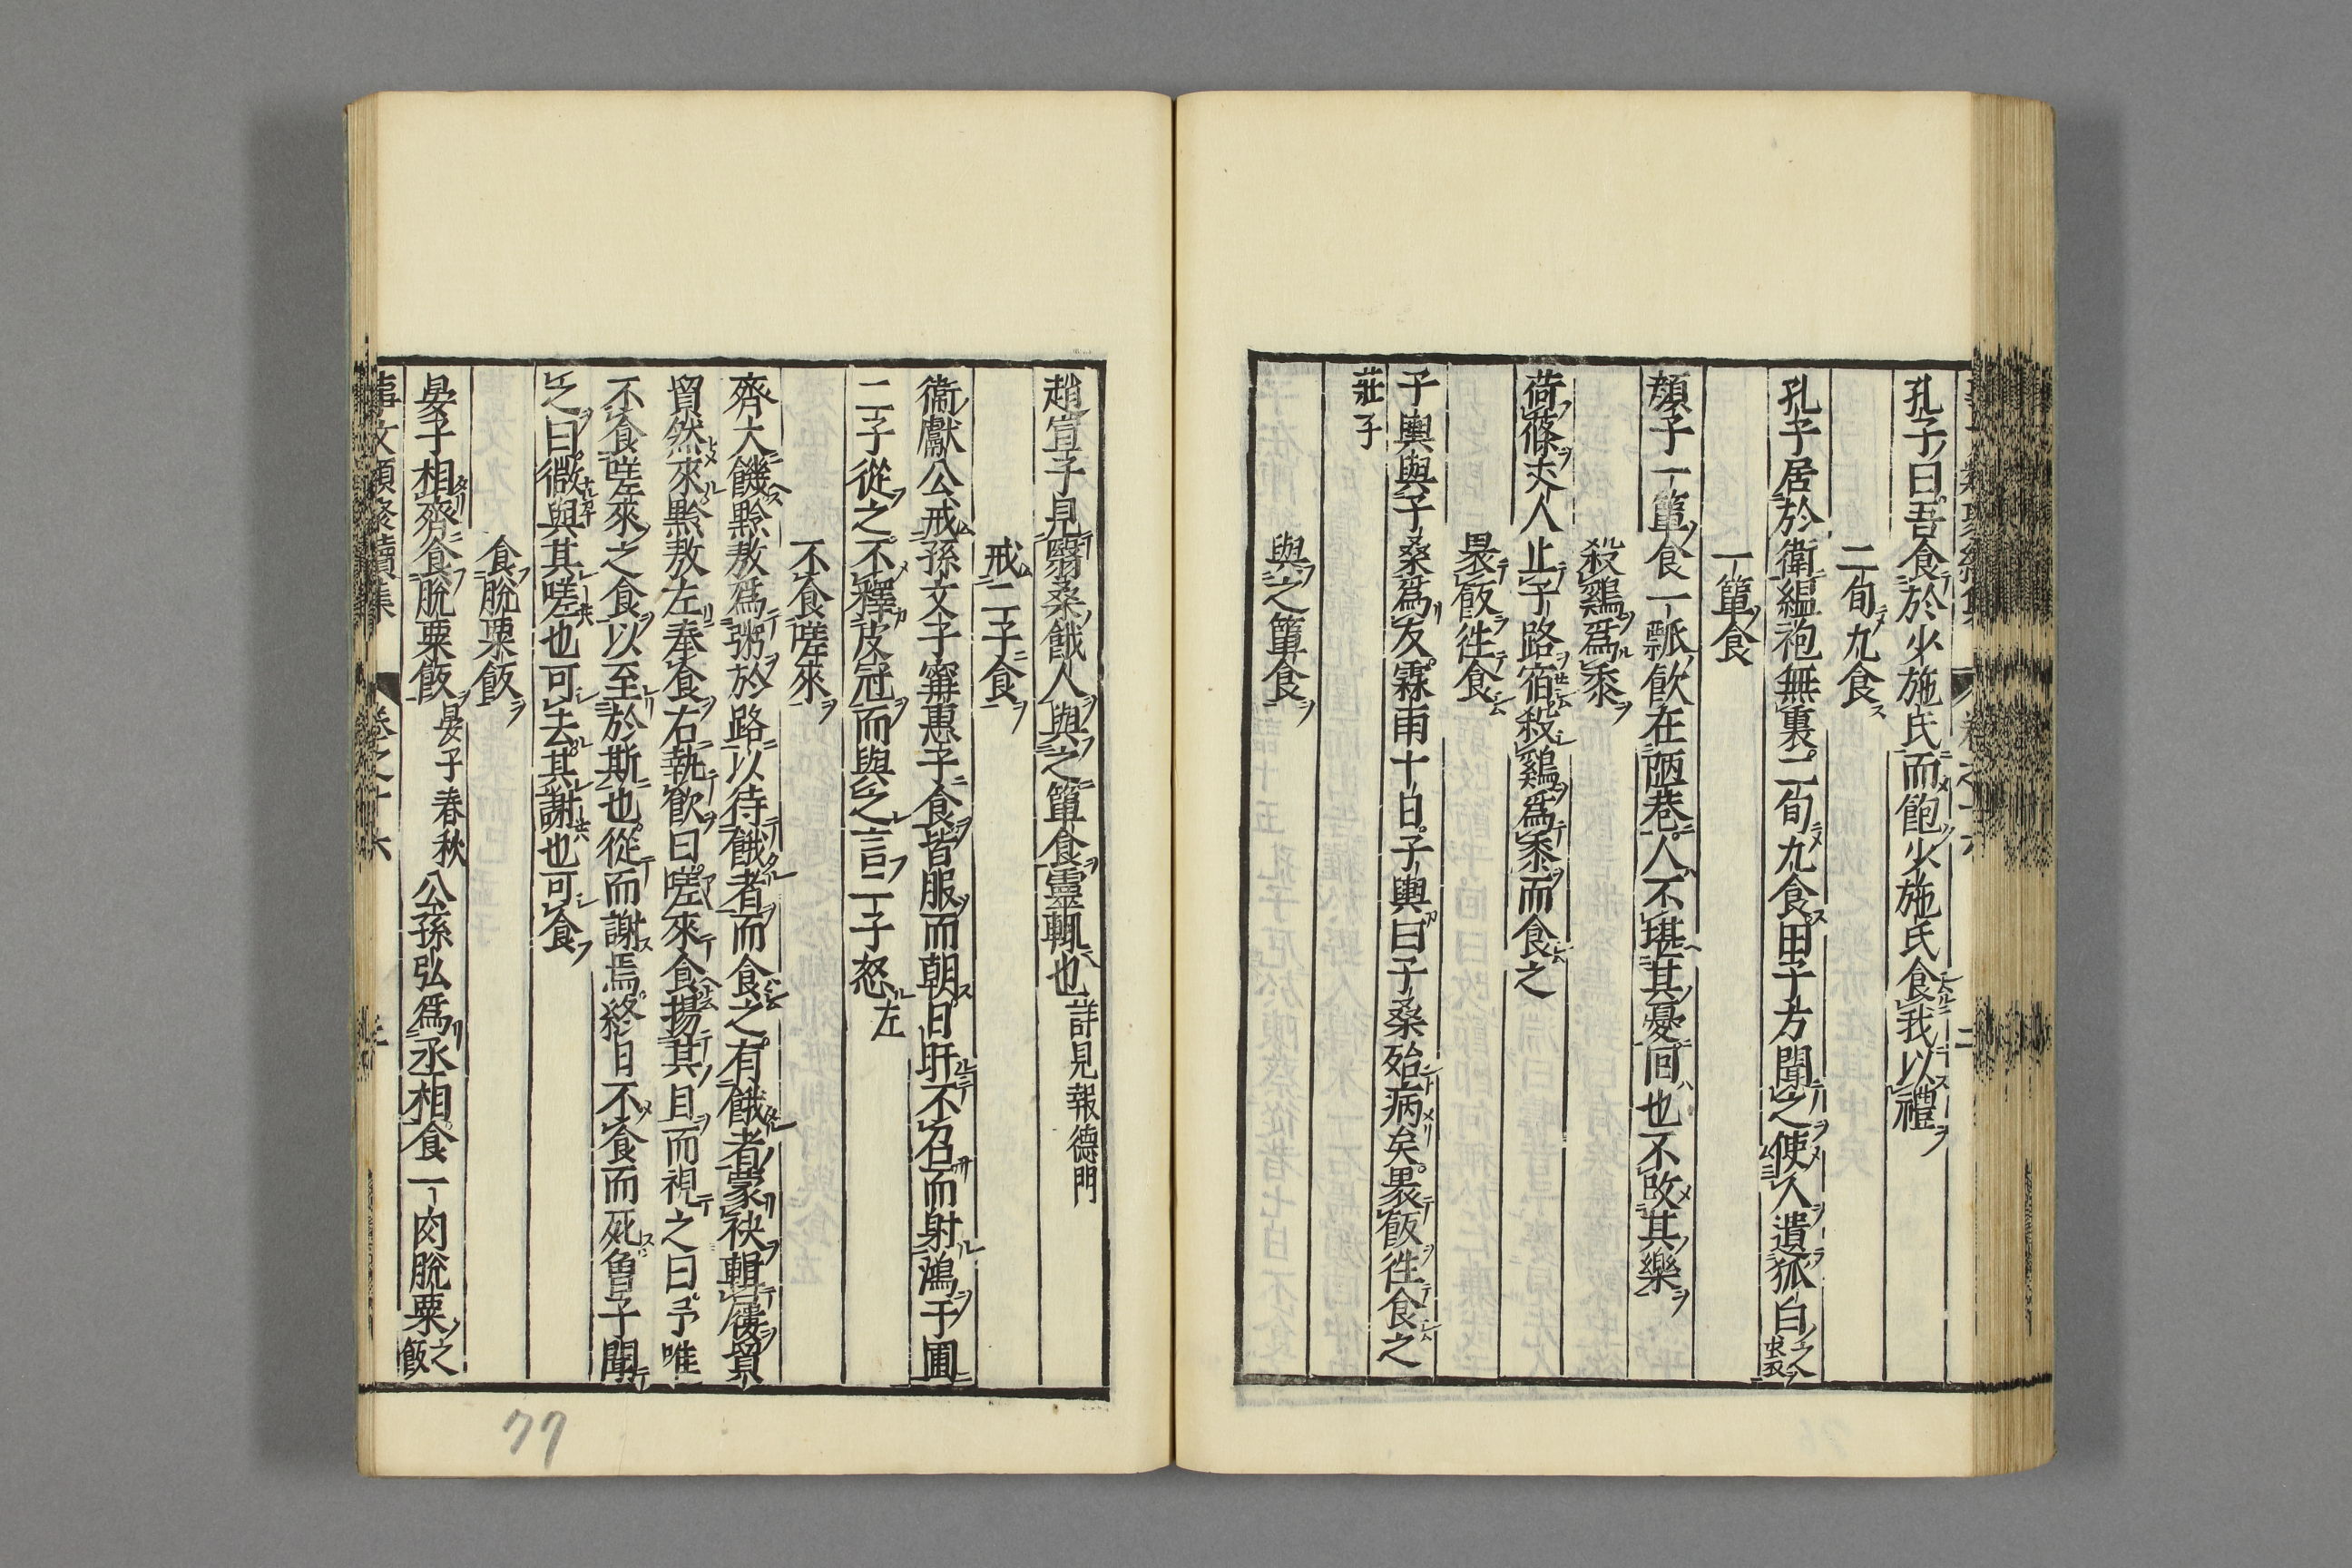 孔子曰吾食於少施氏而飽少施氏食我以禮
二旬九食
孔子居於衛縕袍無裏二旬九食田子方聞之使人遺狐白之裘
一簞食
顏子一簞食一瓢飲在陋巷人不堪其憂回也不改其樂
殺鷄爲黍
荷蓧丈人止子路宿殺鷄爲黍而食之
裹飯徃食
子輿與子桑爲友霖雨十日子輿曰子桑殆病矣裹飯徃食之
莊子
與之簞食
趙宣子見翳桑餓人與之簞食靈輒也詳見報德門
戒二子食
衞獻公戒孫文子甯惠子食皆服而朝日旰不召而射鴻于圃
二子從之不釋皮冠而與之言二子怒左
不食嗟來
齊大饑黔敖爲粥於路以待餓者而食之有餓者蒙袂輯屨貿
貿然來黔敖左奉食右執飲曰嗟來食揚其目而視之曰予唯
不食嗟來之食以至於斯也從而謝焉終日不食而死魯子聞
之曰微與其嗟也可去其謝也可食
食脫粟飯
晏子相齊食脫粟飯晏子春秋公孫弘爲丞相食一肉脫粟之飯
事文類聚續集 卷之十六